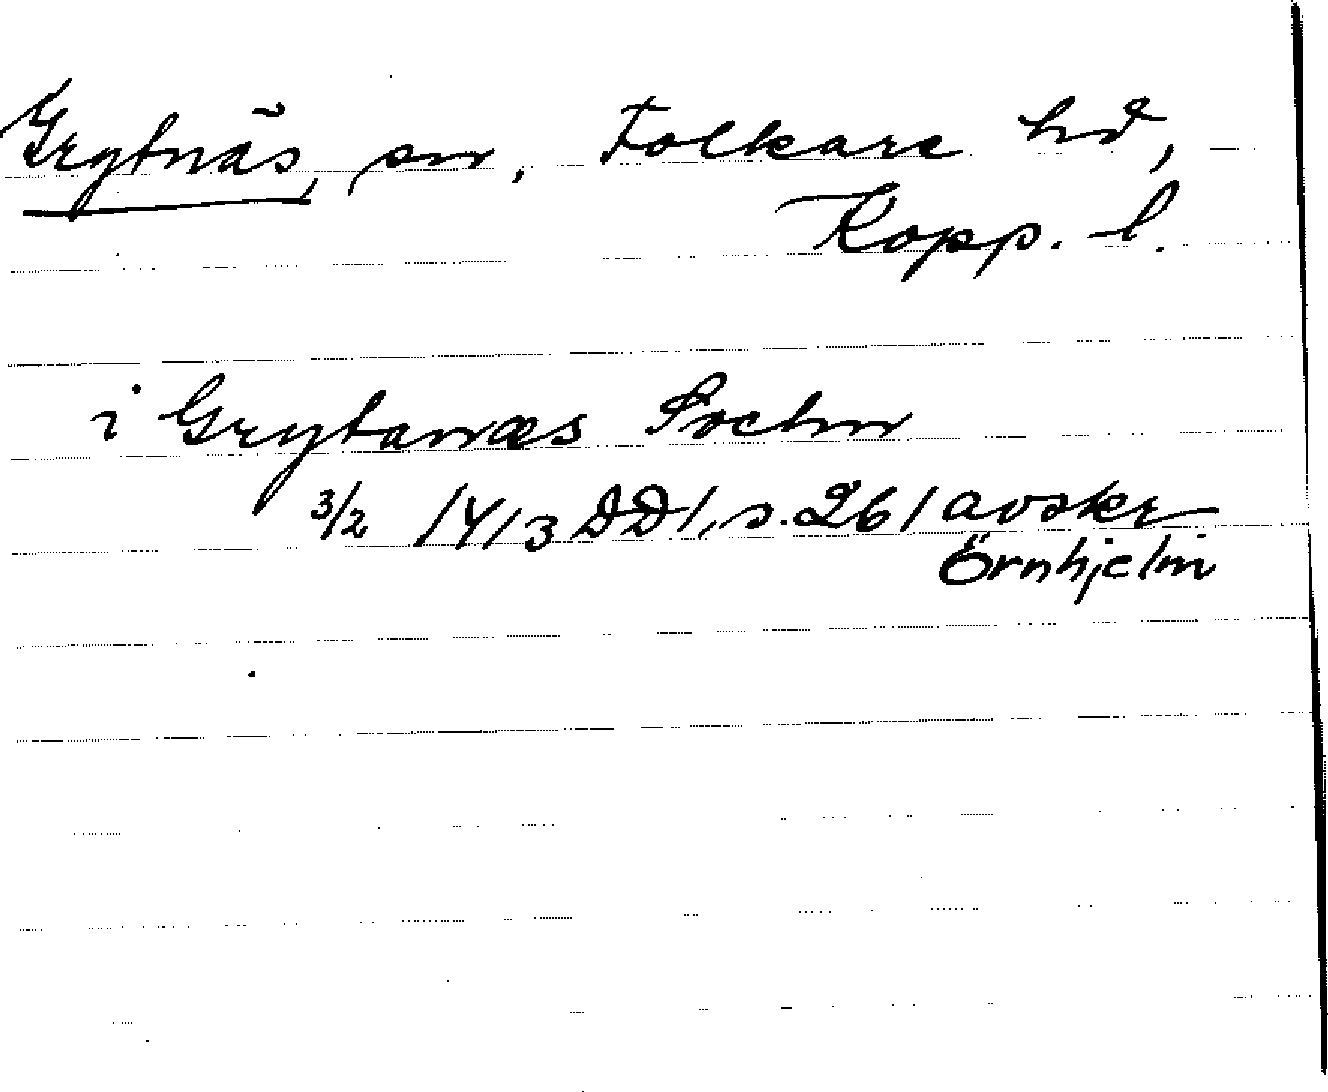 Grytnäs, sn, Folkare hd,
Kopp. l.
i Grytanæs Sochn
3/2 1413 DD1, s. 261 avskr
Örnhjelm